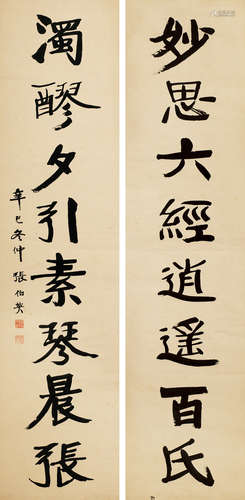 妙思六經逍遥百氏
濁醪夕引素琴晨張
辛巳冬仲 張伯英